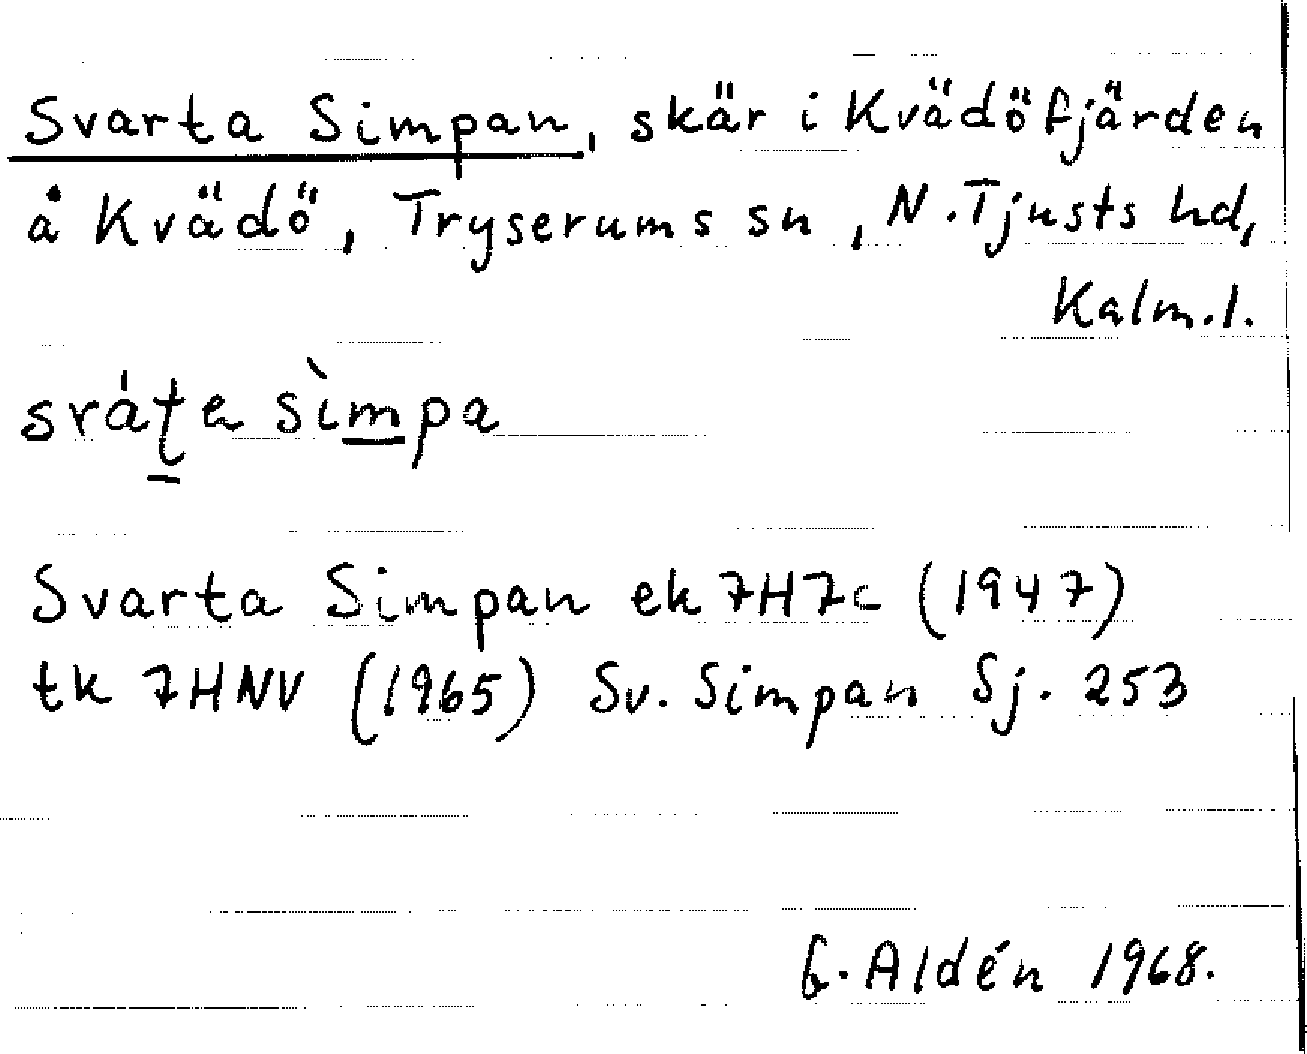 Svarta Simpan, skär i Kvädöfjärden
å Kvädö, Tryserums sn, N. Tjusts hd,
Kalm. l.
sváʈa sìmpa
Svarta Simpan ek 7H7c (1947)
tk 7HNV (1965) Sv. Simpan Sj. 253
G. Aldén 1968.